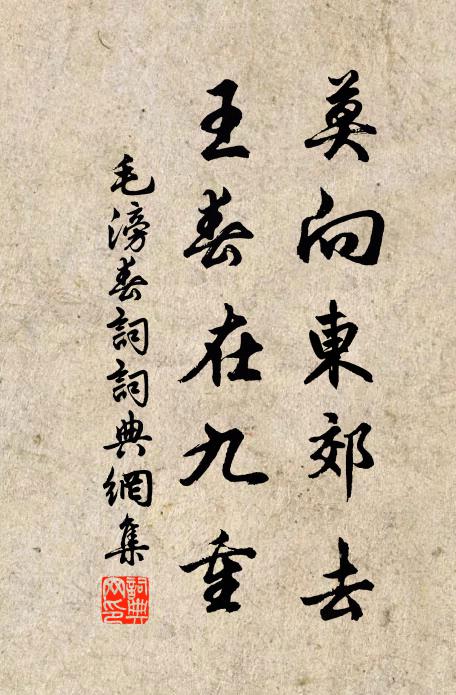 莫向東郊去
王春在九重
毛滂春詞詞典網集
詞典網印